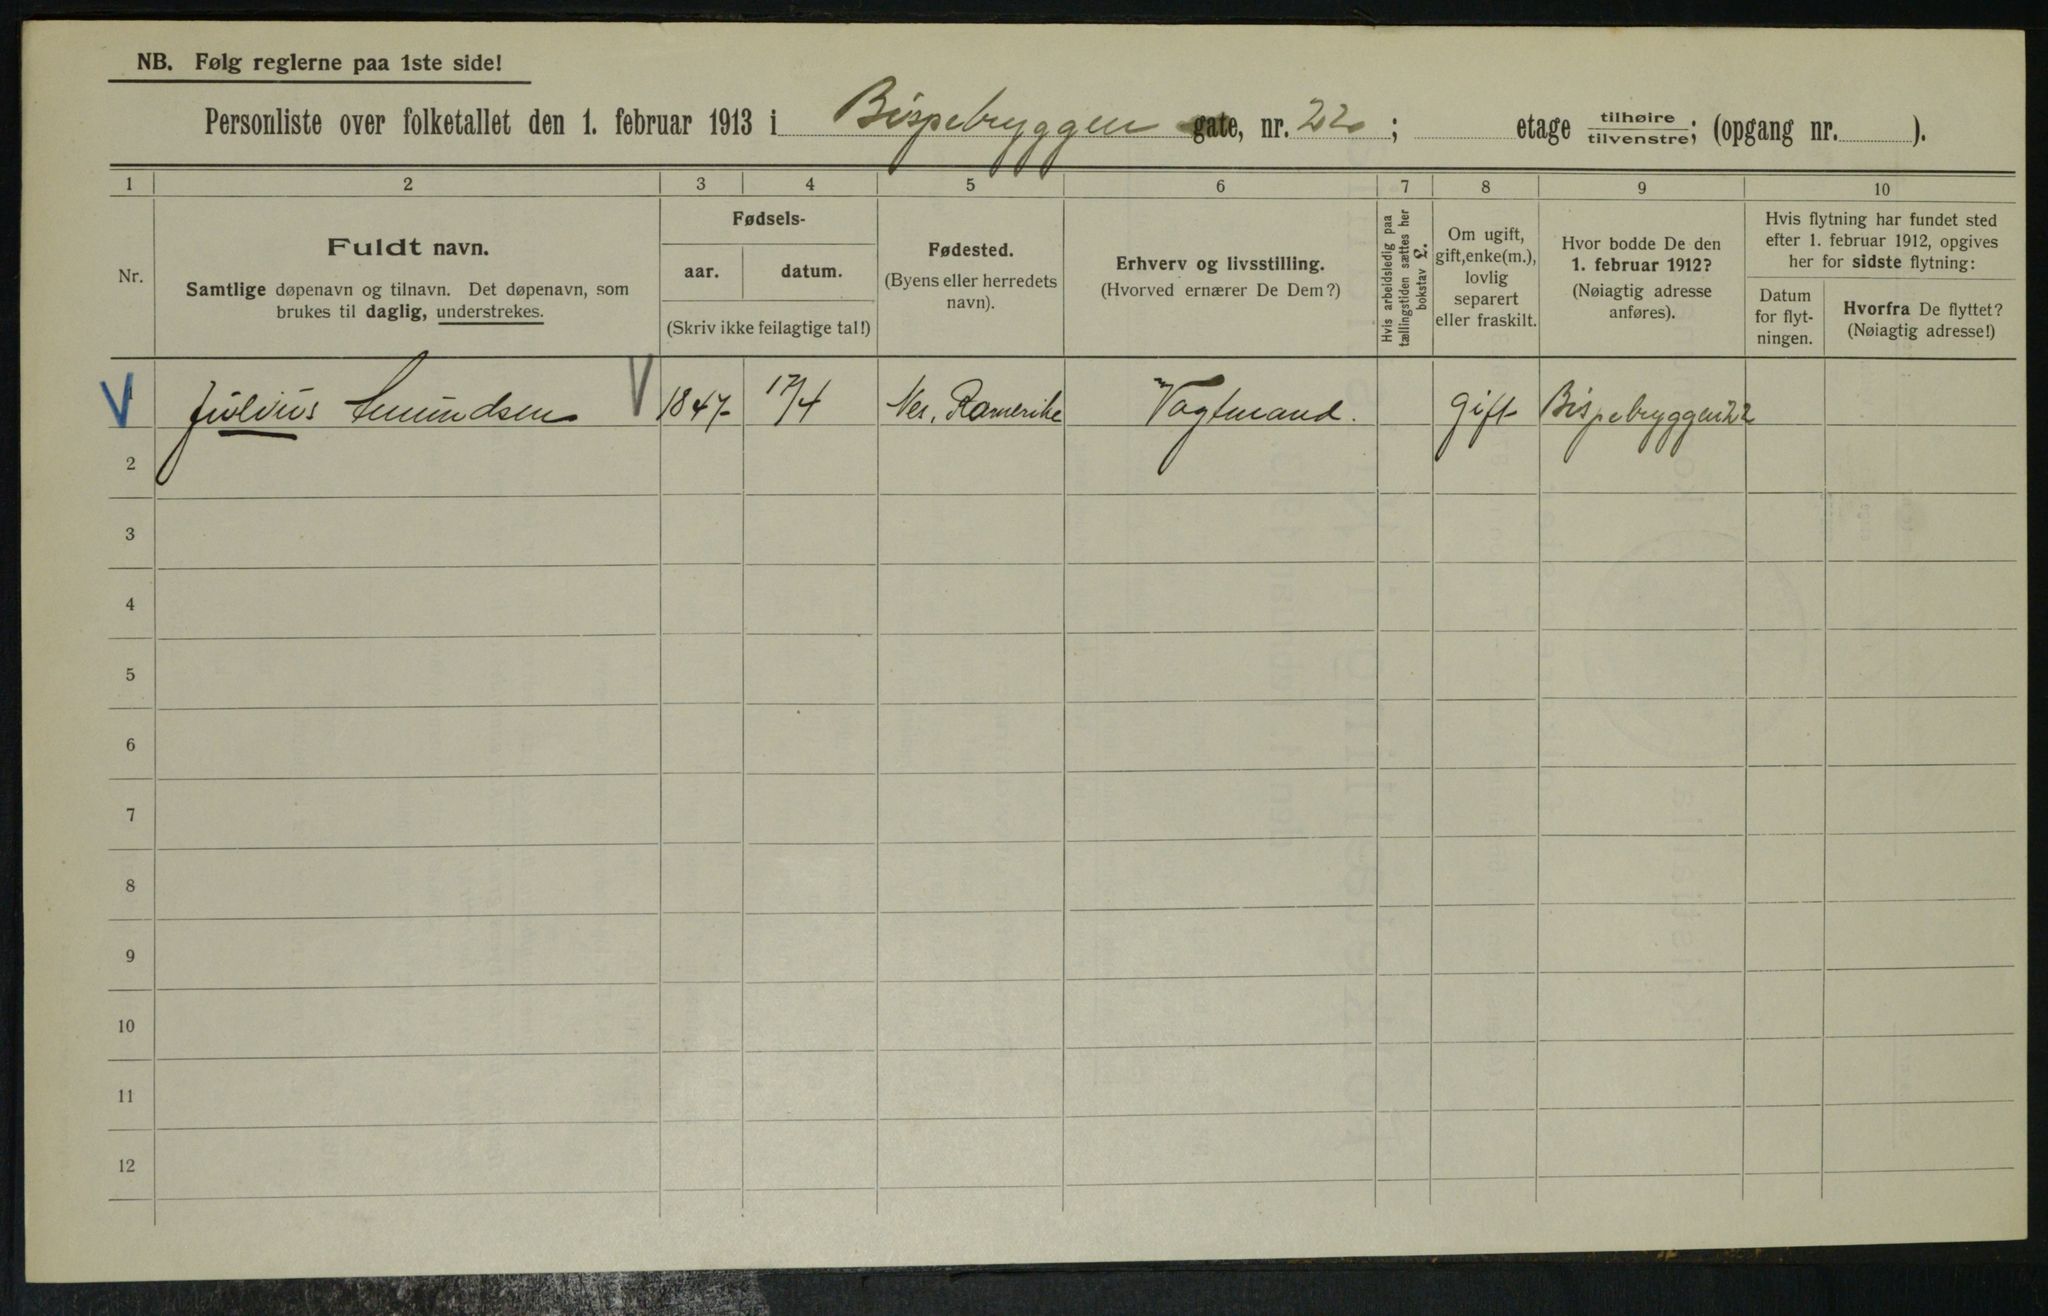 NB. Følg reglerne paa 1ste side!
Personliste over folketallet den 1. februar 1913 i Bispebryggen gate, nr. 22 ; etage tilhøire/tilvenstre; (opgang nr. ).
1 2 3 4 5 6 7 8 9 10
Nr.
Fuldt navn.
Samtlige døpenavn og tilnavn. Det døpenavn, som
brukes til daglig, understrekes.
Fødsels-
aar. datum.
(Skriv ikke feilagtige tal!)
Fødested.
(Byens eller herredets
navn).
Erhverv og livsstilling.
(Hvorved ernærer De Dem?)
Hvis arbeidsledig paa
tællingstiden sættes her
bokstav L.
Om ugift,
gift, enke(m.),
lovlig
separert
eller fraskilt.
Hvor bodde De den
1. februar 1912?
(Nøiagtig adresse
anføres).
Hvis flytning har fundet sted
efter 1. februar 1912, opgives
her for sidste flytning:
Datum
for flyt-
ningen.
Hvorfra De flyttet?
(Nøiagtig adresse!)
1 Julius Amundsen 1847 17/4 Nes, Romerike Vagtmand. gift Bispebryggen 22
2
3
4
5
6
7
8
9
10
11
12